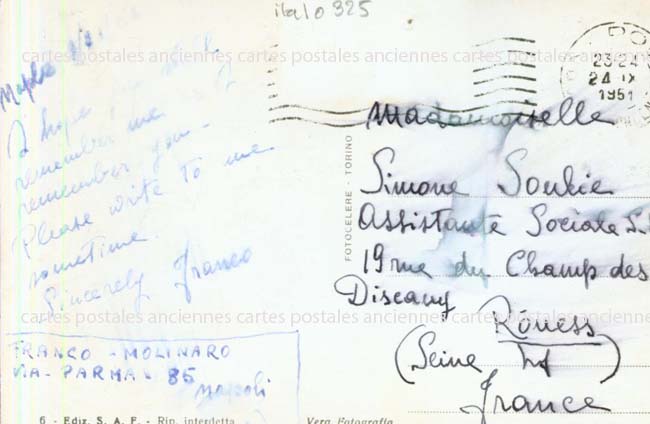 italo 325
cartes postales anciennes cartes postales anciennes cartes postales anciennes
23-24
24 IX
1951
I hope
remember me
remember you -
Please write to me
sometime.
Sincerely Franco
FRANCO - MOLINARO
VIA - PARMA - 85
napoli
6 - Ediz. S. A. F. - Rip. interdetta
FOTOCELERE - TORINO
Vera Fotografia
Mademoiselle
Simone Soulie
Assistante Sociale S.
19 rue du Champ des
(Seine Inf)
France
cartes postales anciennes cartes postales anciennes cartes postales anciennes